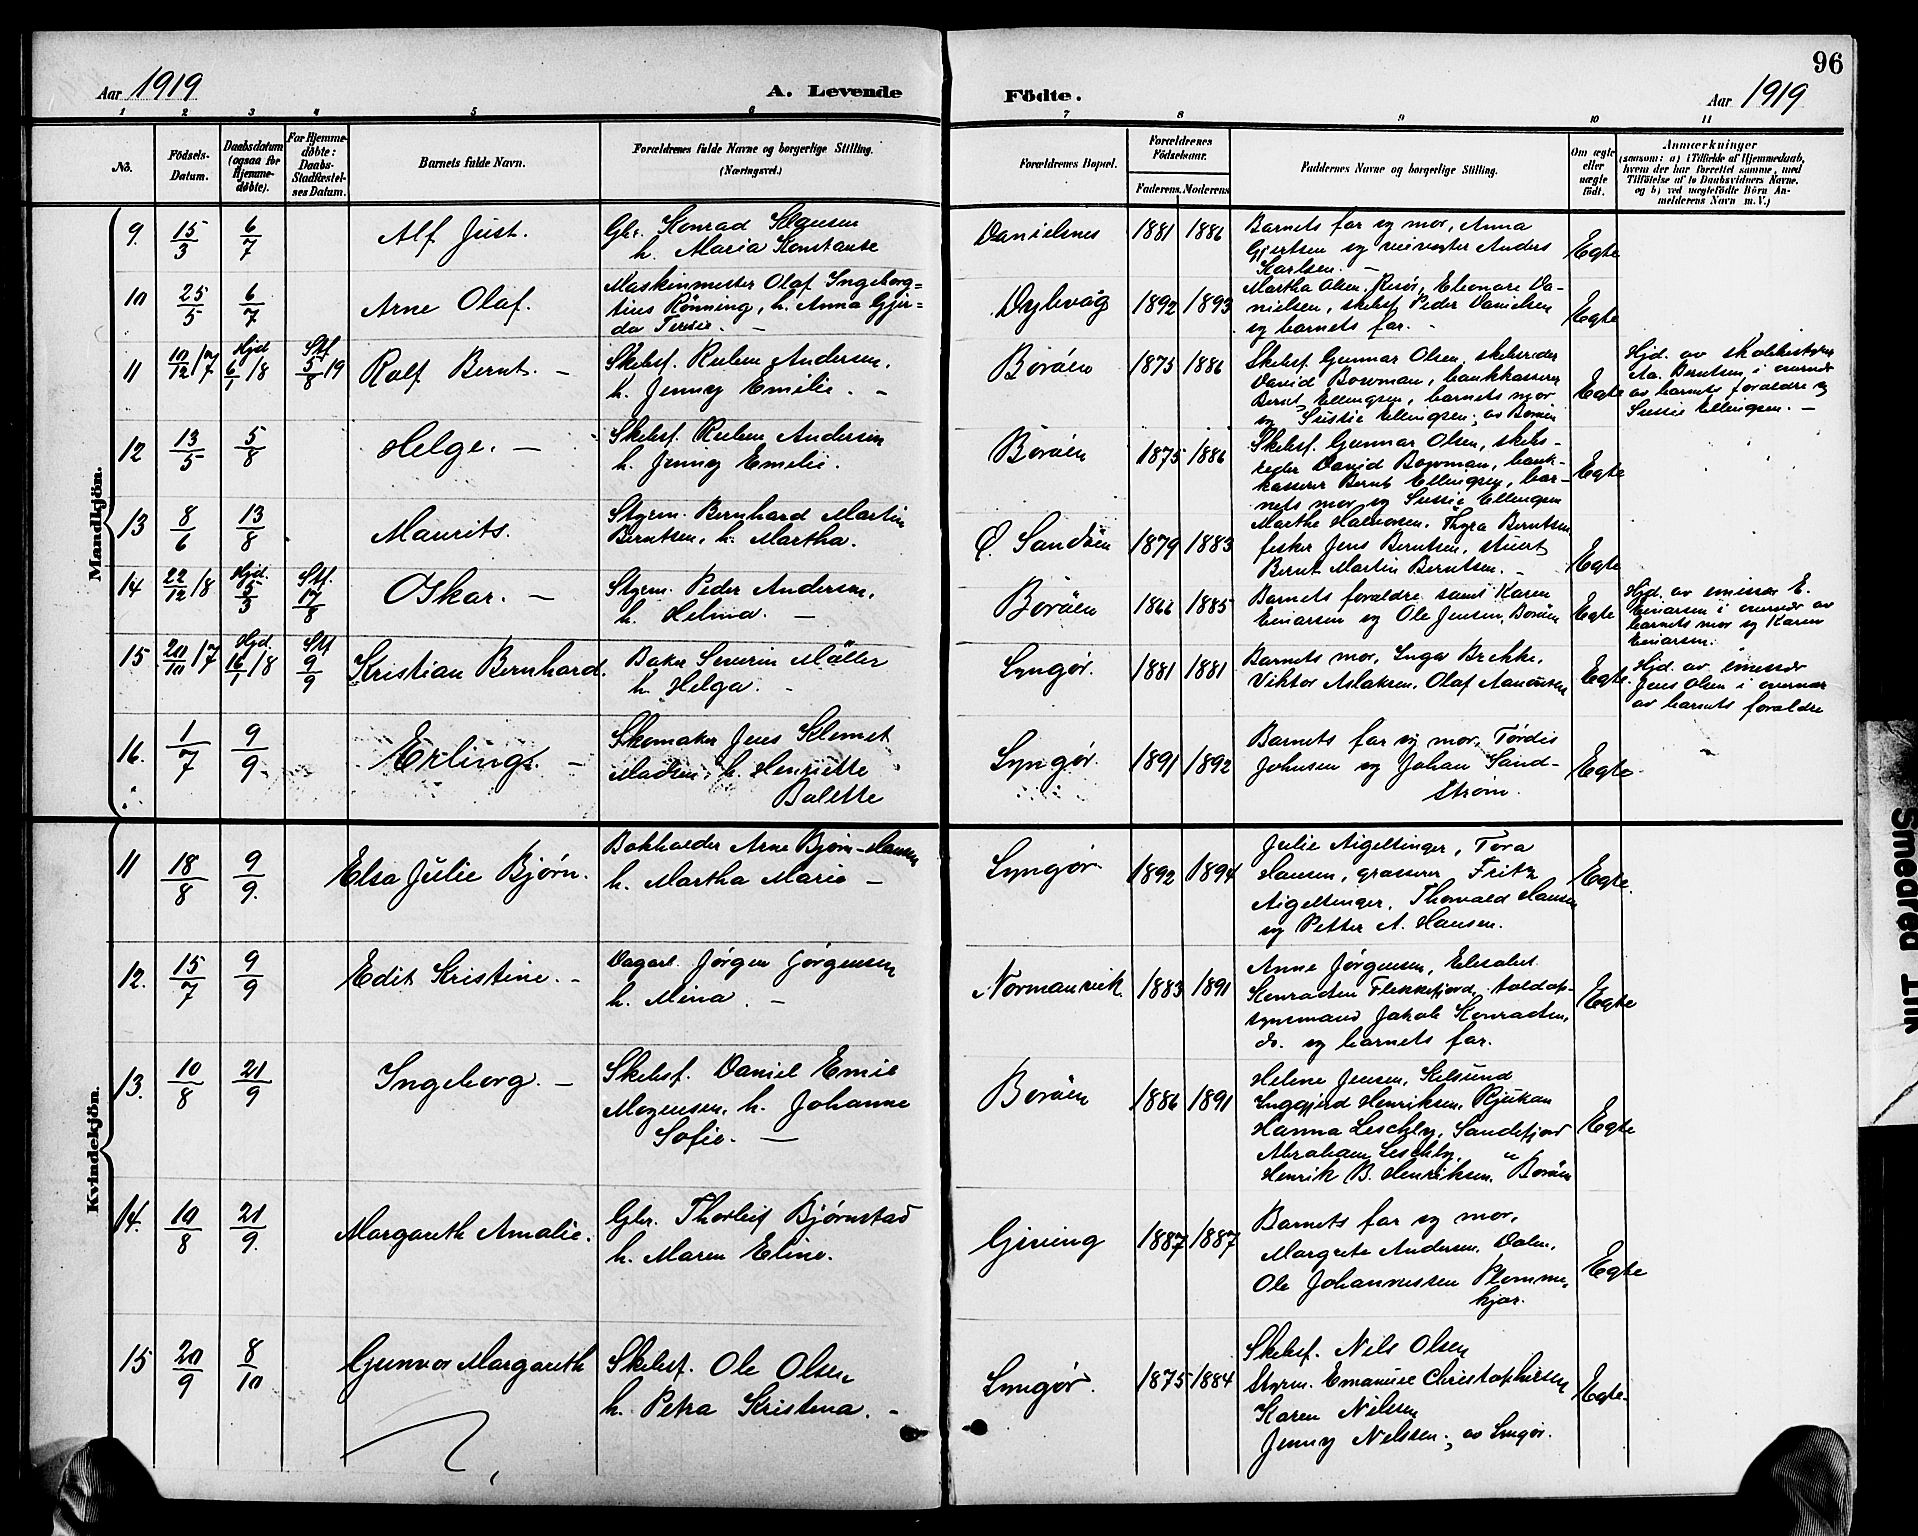 96
Aar 1919
A. Levende
Födte.
Aar 1919
1 2 3 4 5 6 7 8 9 10 11
No.
Födsels-
Datum.
Daabsdatum
(ogsaa for
Hjemme-
døbte).
For Hjemme-
døbte:
Daabs-
Stadfæstel-
ses Datum.
Barnets fulde Navn.
Forældrenes fulde Navne og borgerlige Stilling.
(Næringsvei.)
Forældrenes Bopæl.
Forældrenes
Födselsaar.
Faderens. Moderens.
Faddernes Navne og borgerlige Stilling.
Om ægte
eller
uægte
født.
Anmærkninger
(saasom: a) i Tilfælde af Hjemmedaab,
hvem der har forrettet samme, med
Tilføielse af to Daabsvidners Navne,
og b) ved uægtefödte Börn An-
melderens Navn m. V.)
Mandkjön.
9. 15/3 6/7 Alf Just.
Gbr. Konrad Klausen
h. Maria Konstanse
Danielnes 1881 1886
Barnets far og mor, Anna
Gjertsen og veivogter Anders
Karlsen. –
Egte
10 25/5 6/7 Arne Olaf.
Maskinmester Olaf Ingeborg=
tius Rönning, h. Anna Gjur-
da Terese. –
Dybvåg 1892 1893
Martha Olsen, Risör, Eleonore Da-
nielsen, skibsf. Peder Danielsen
og barnets far. -
Egte
11 10/12 17 Hjd. 6/1 18 Stf. 5/8 19 Rolf Bernt. –
Skibsf. Ruben Andersen,
h. Jenny Emilie. –
Boröen 1875 1886
Skibsf. Gunnar Olsen, skibsreder
David Bowman, bankkasserer
Bernt Ellingsen, barnets mor
og Sussie Ellingsen, av Boröen
Egte
Hjd. av skolebestyrer
Aa. Berntsen i overvær
av barnets foraldre og
Sussie Ellingsen. –
12 13/5 5/8 Helge. –
Skibsf. Ruben Andersen
h. Jenny Emelie.
Boröen 1875 1886
Skibsf. Gunnar Olsen, skibs-
reder David Bowman, bank-
kasserer Bernt Ellingsen, bar-
nets mor og Sussie Ellingsen
Egte
13 8/6 13/8 Maurits.
Styrm. Bernhard Martin
Berntsen, h. Martha.
Ö. Sandöen 1879 1883
Marthe Halvorsen, Thyra Berntsen
fisker Jens Berntsen, stuert
Bernt Martin Berntsen. –
Egte
14 22/12 18 Hjd. 5/3 Stf. 17/8 Oskar. –
Styrm. Peder Andersen,
h. Helma. –
Boröen 1866 1885
Barnets foraldre samt Karen
Einarsen og Ole Jensen, Boröen
Egte
Hjd. av emissær E.
Einarsen i overvær av
barnets mor og Karen
Einarsen.
15 20/10 17 Hjd. 16/1 18 Stf 9/9 Kristian Bernhard.
Baker Severin Möller
h. Helga. -
Lyngør. 1881 1881
Barnets mor, Inga Brekke,
Viktor Aslaksen, Olaf Aanonsen
Egte.
Hjd. av emissær
Jens Olsen i overvær
av barnets foraldre
16. 1/7 9/9 Erling. –
Skomaker Jens Klemet
Madsen, h. Henriette
Bolette
Lyngør. 1891 1892
Barnets far og mor, Tórdis
Johnsen og Johan Sand-
strøm.
Egte.
Kvindekjön.
11 18/8 9/9. Elsa Julie Bjørn.
Bokholder Arne Bjørn-Hansen
h. Martha Marie –
Lyngør. 1892 1894
Julie Aigeltinger, Tora
Hansen, grosserer Fritz
Aigeltinger, Thorvald Hansen
og Petter A. Hansen.
Egte.
12. 15/7 9/9 Edit Kristine. –
Dagarb. Jørgen Jørgensen
h. Mina. –
Normansvik 1883 1891
Anne Jørgensen, Elisabet
Konradsen Flekkefjord, toldop-
synsmand Jakob Konradsen,
do. og barnets far.
Egte
13. 10/8 21/9 Ingeborg. –
Skibsf. Daniel Emil
Mogensen, h. Johanne
Sofie. –
Boröen 1886 1891
Helene Jensen, Kilsund
Inggjerd Henriksen, Rjukan
Hanna Leschby, Sandefjord
Abraham Leschby, "
Henrik B. Henriksen, Boröen
Egte
14. 10/8 21/9. Margareth Amalie.
Gbr. Thorleif Bjørnstad
h. Maren Eline.
Gjeving 1887 1887
Barnets far og mor,
Margrete Andersen, Dalen,
Ole Johannessen Plomme-
kjær.
Egte
15 20/9 8/10 Gunvor Margareth
Skibsf. Ole Olsen
h. Petra Kristina. –
Lyngør. 1875 1884
Skibsf. Nils Olsen
Styrm. Emanuel Christophersen
Karen Nilsen
Jenny Nilssen, av Lyngør.
Egte.
Smeared Ink